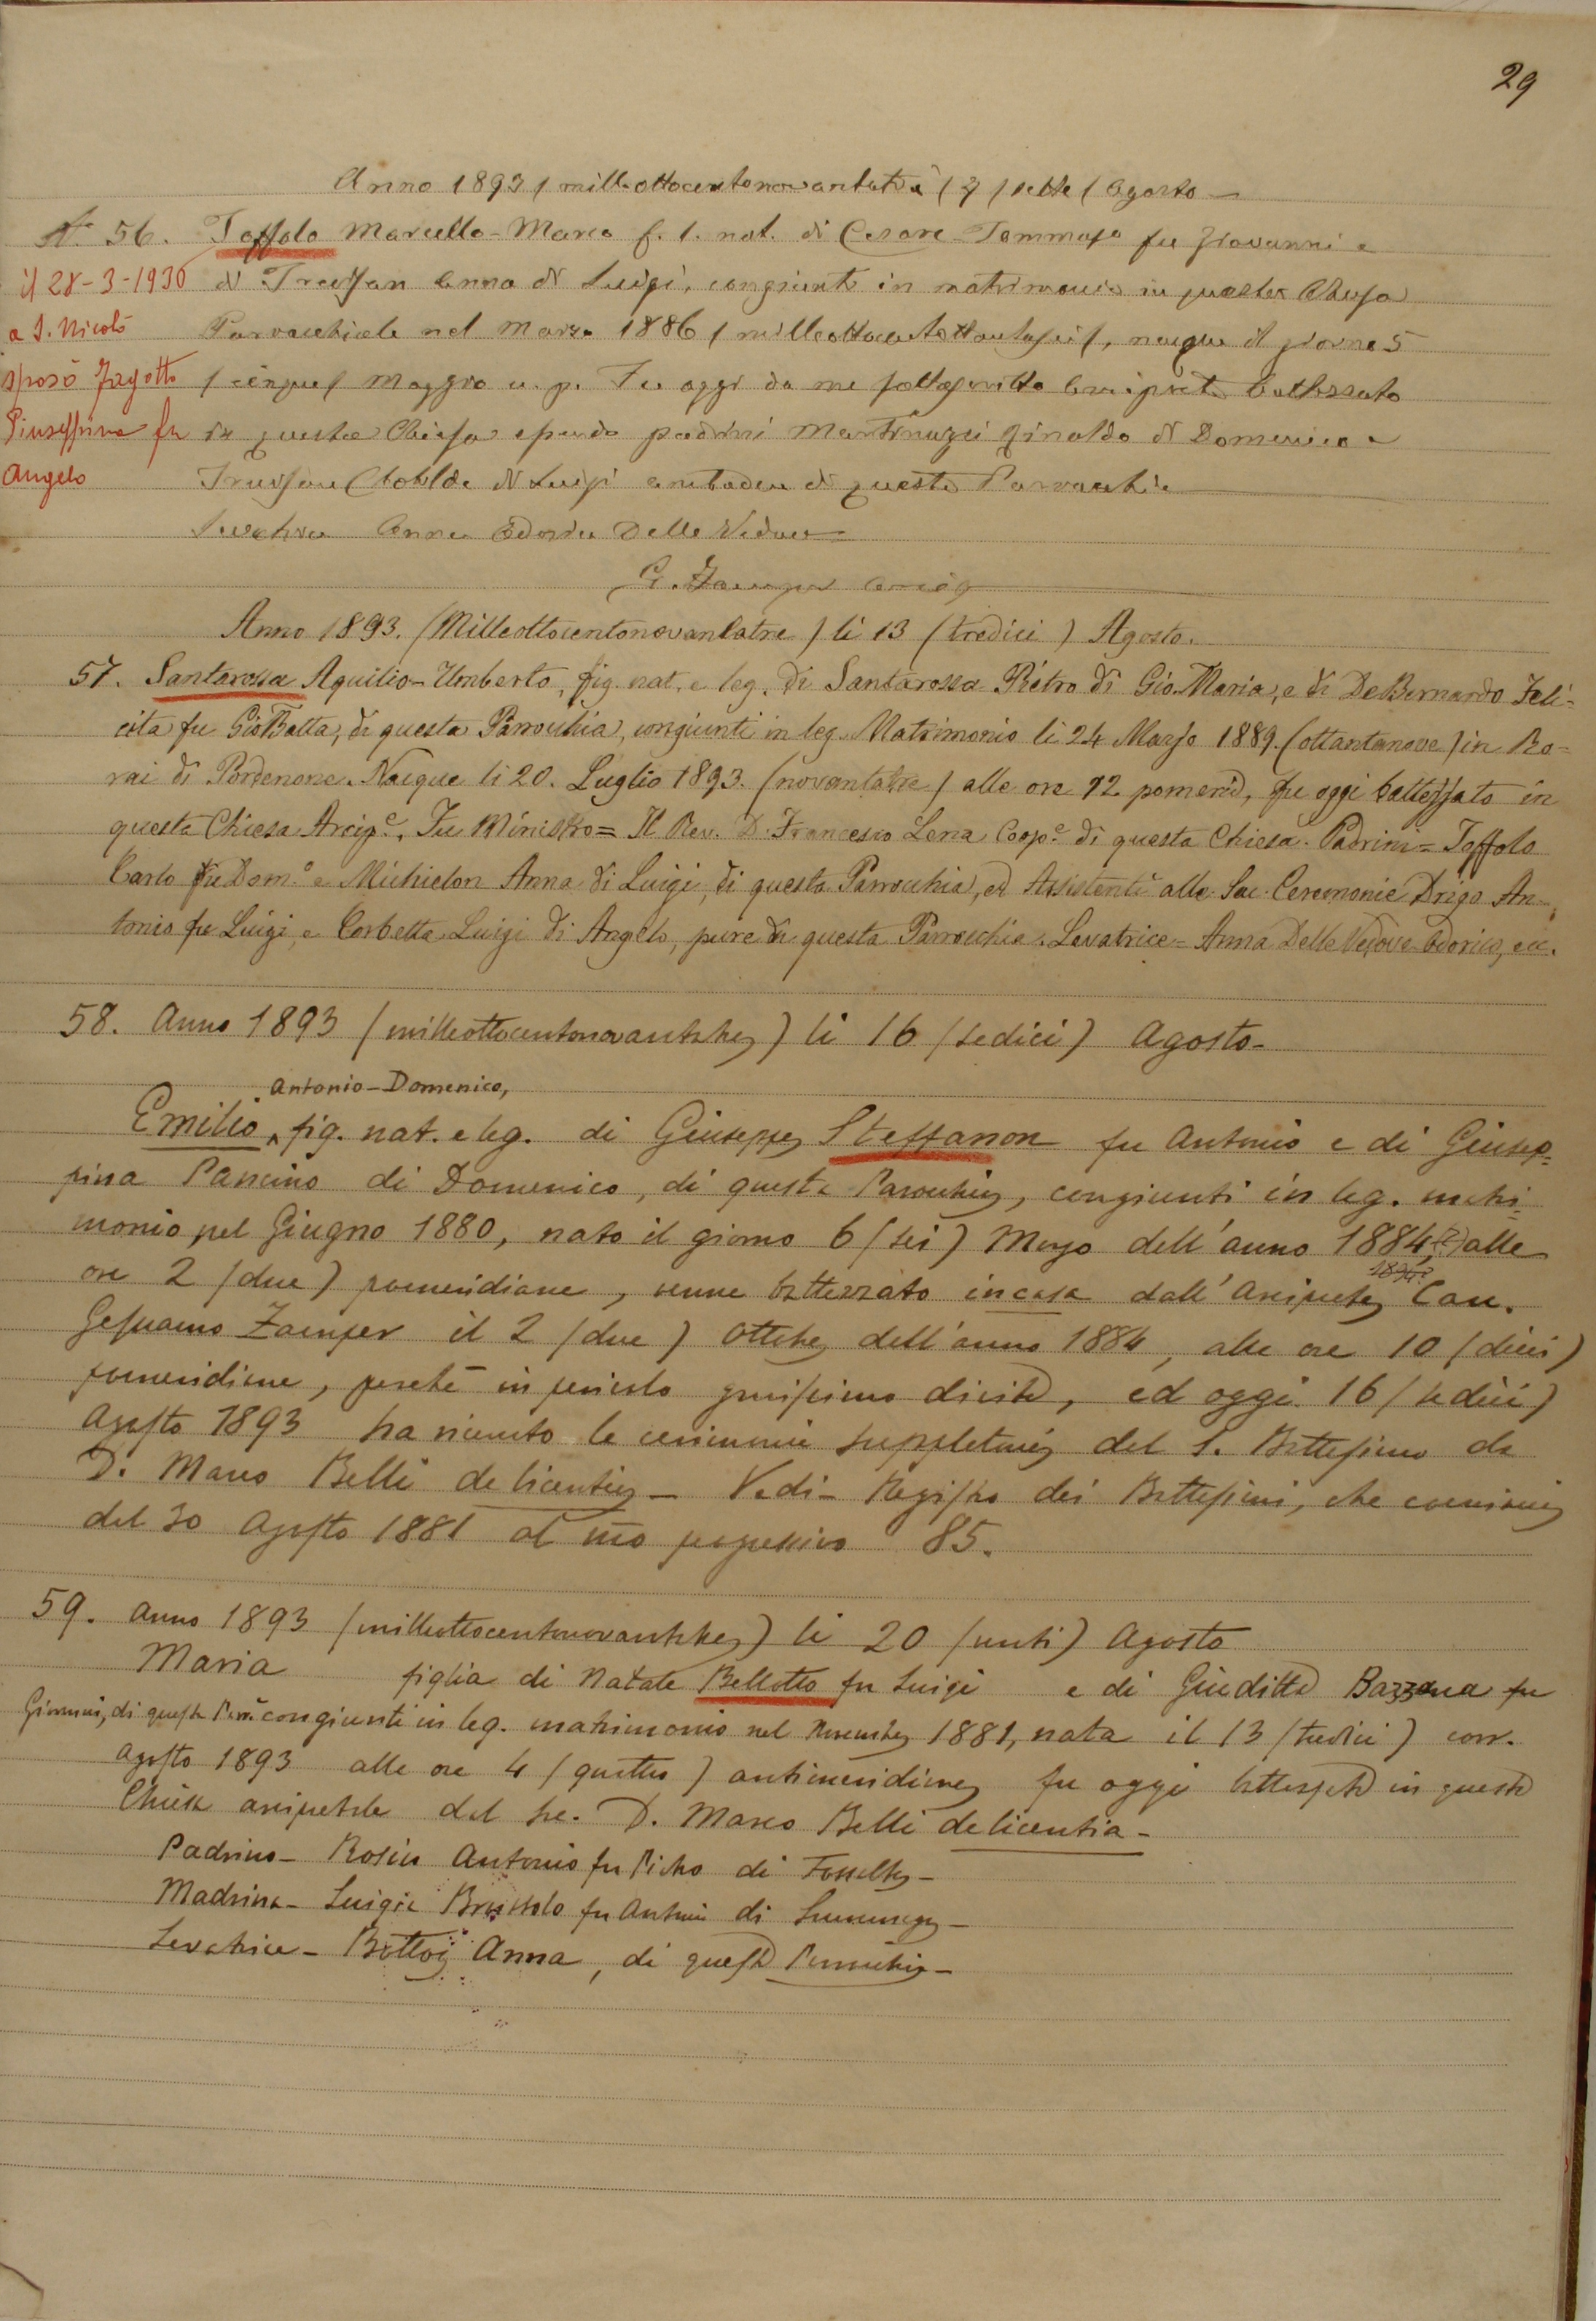 29
Anno 1893 / milleottocentonovantatrè / 7 / sette / Agosto —
N. 56. Toffolo Marcello-Marco f. l. nat. di Cesare-Tommaso fu Giovanni e
il 28-3-1930 di Trevisan Anna di Luigi, congiunti in matrimonio in questa Chiesa
a S. Nicolò Parrocchiale nel Marzo 1886 / milleottocentottantasei /, nacque il giorno 5
sposò Zagotto / cinque / Maggio u. p. Fu oggi da me sottoscritto Arciprete battezzato
Giuseppina fu in questa Chiesa essendo padrini Martinuzzi Rinaldo di Domenico e
Angelo Trevisan Clotilde di Luigi ambedue di questa Parrocchia
Levatrice Anna Odorico Delle Vedove
G. Zamper Arcip
Anno 1893. (Milleottocentonovantatre) li 13 (tredici) Agosto.
57. Santarossa Aquilio-Umberto, fig. nat. e leg. di Santarossa Pietro di Gio. Maria, e di De Bernardo Feli=
cita fu Gio Batta, di questa Parrocchia, congiunti in leg. Matrimonio li 24 Marzo 1889. (ottantanove) in Ro=
rai di Pordenone. Nacque li 20. Luglio 1893. (novantatre) alle ore 12 pomerid, fu oggi battezzato in
questa Chiesa Arcip.e, Fu Ministro= Il Rev. D. Francesco Lena Coop.e di questa Chiesa. Padrini= Toffolo
Carlo fu Dom.o e Michielon Anna di Luigi, di questa Parrocchia, ed Assistenti alle Sac. Ceremonie Drigo An=
tonio fu Luigi, e Corbetta Luigi di Angelo, pure di questa Parrocchia. Levatrice= Anna Delle Vedove Odorico, ecc.
58. Anno 1893 (milleottocentonovantatre) li 16 (sedici) Agosto-
Antonio-Domenico,
Emilio, fig. nat. e leg. di Giuseppe Steffanon fu Antonio e di Giusep=
pina Pancino di Domenico, di questa Parrocchia, congiunti in leg. matri=
monio nel Giugno 1880, nato il giorno 6 (sei) Marzo dell'anno 1884, alle
ore 2 (due) pomeridiane, venne battezzato in casa dall'Arciprete Can.
Gesuamo Zamper il 2 (due) Ottobre dell'anno 1884, alle ore 10 (dieci)
pomeridiane, perché in pericolo gravissimo di vita, ed oggi 16 (sedici)
Agosto 1893 ha ricevuto le cerimonie suppletorie del S. Battesimo da
D. Marco Belli de licentia — Vedi- Registro dei Battesimi, che comincia
dal 30 Agosto 1881 al nro progressivo 85.
59. Anno 1893 (milleottocentonovantatre) li 20 (venti) Agosto
Maria figlia di Natale Bellotto fu Luigi e di Giuditta Bazzana fu
Giovanni, di questa Parr. congiunti in leg. matrimonio nel Novembre 1881, nata il 13 (tredici) corr.
Agosto 1893 alle ore 4 (quattro) antimeridiane fu oggi battezzata in questa
Chiesa arcipretale dal sac. D. Marco Belli de licentia -
Padrino- Rosin Antonio fu Pietro di Fossalta -
Madrina- Luigia Brussolo fu Antonio di Summaga -
Levatrice- Bottos Anna, di questa Parrocchia -